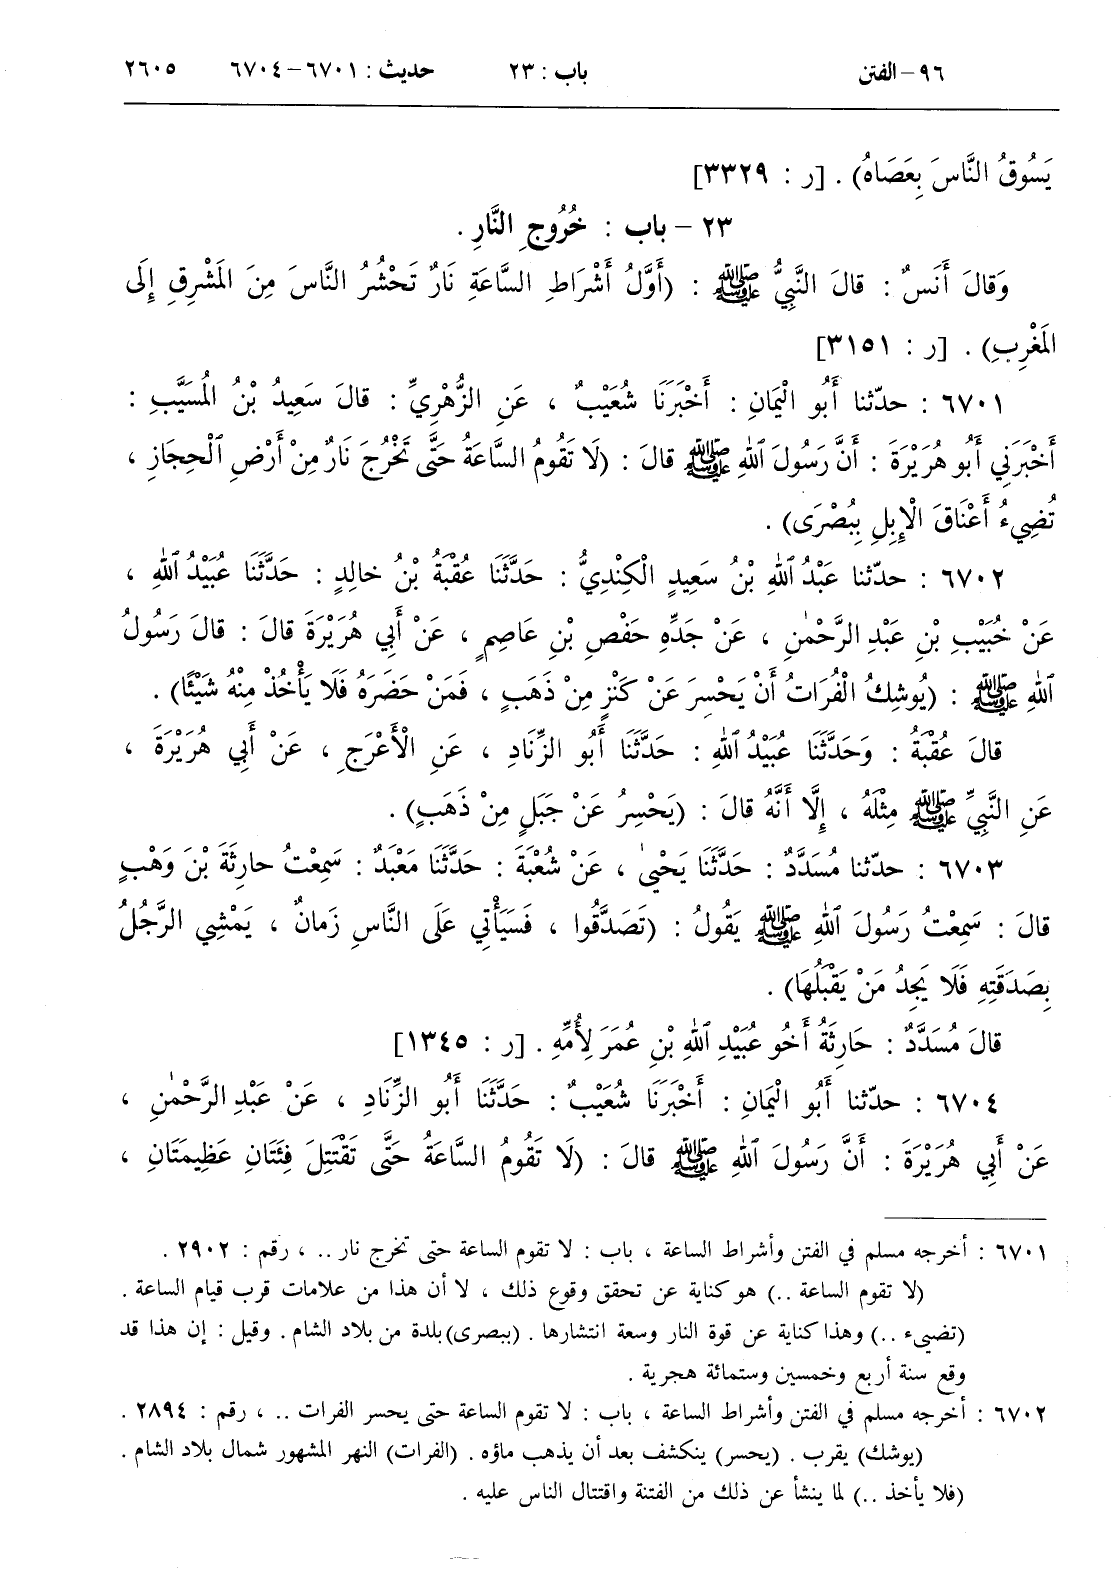 ٩٦-الفتن باب : ٢٣ حديث : ٦٧٠١-٦٧٠٤ ٢٦٠٥
يَسُوقُ النَّاسَ بِعَصَاهُ) . [ر : ٣٣٢٩]
٢٣ - باب : خُرُوجِ النَّارِ .
وَقالَ أَنَسٌ : قالَ النَّبِيُّ ﷺ : (أَوَّلُ أَشْرَاطِ السَّاعَةِ نَارٌ تَحْشُرُ النَّاسَ مِنَ المَشْرِقِ إِلَى
المَغْرِبِ) . [ر : ٣١٥١]
٦٧٠١ : حدّثنا أَبُو الْيَمانِ : أَخْبَرَنَا شُعَيْبٌ ، عَنِ الزُّهْرِيِّ : قالَ سَعِيدُ بْنُ المُسَيَّبِ :
أَخْبَرَنِي أَبُو هُرَيْرَةَ : أَنَّ رَسُولَ ٱللهِ ﷺ قالَ : (لَا تَقُومُ السَّاعَةُ حَتَّى تَخْرُجَ نَارٌ مِنْ أَرْضِ ٱلْحِجَازِ ،
تُضِيءُ أَعْنَاقَ الْإِبِلِ بِبُصْرَى) .
٦٧٠٢ : حدّثنا عَبْدُ ٱللهِ بْنُ سَعِيدٍ الْكِنْدِيُّ : حَدَّثَنَا عُقْبَةُ بْنُ خالِدٍ : حَدَّثَنَا عُبَيْدُ ٱللهِ ،
عَنْ خُبَيْبِ بْنِ عَبْدِ الرَّحْمٰنِ ، عَنْ جَدِّهِ حَفْصِ بْنِ عَاصِمٍ ، عَنْ أَبِي هُرَيْرَةَ قالَ : قالَ رَسُولُ
ٱللهِ ﷺ : (يُوشِكُ الْفُرَاتُ أَنْ يَحْسِرَ عَنْ كَنْزٍ مِنْ ذَهَبٍ ، فَمَنْ حَضَرَهُ فَلَا يَأْخُذْ مِنْهُ شَيْئًا) .
قالَ عُقْبَةُ : وَحَدَّثَنَا عُبَيْدُ ٱللهِ : حَدَّثَنَا أَبُو الزِّنَادِ ، عَنِ الْأَعْرَجِ ، عَنْ أَبِي هُرَيْرَةَ ،
عَنِ النَّبِيِّ ﷺ مِثْلَهُ ، إِلَّا أَنَّهُ قالَ : (يَحْسِرُ عَنْ جَبَلٍ مِنْ ذَهَبٍ) .
٦٧٠٣ : حدّثنا مُسَدَّدٌ : حَدَّثَنَا يَحْيىٰ ، عَنْ شُعْبَةَ : حَدَّثَنَا مَعْبَدٌ : سَمِعْتُ حارِثَةَ بْنَ وَهْبٍ
قالَ : سَمِعْتُ رَسُولَ ٱللهِ ﷺ يَقُولُ : (تَصَدَّقُوا ، فَسَيَأْتِي عَلَى النَّاسِ زَمانٌ ، يَمْشِي الرَّجُلُ
بِصَدَقَتِهِ فَلَا يَجِدُ مَنْ يَقْبَلُهَا) .
قالَ مُسَدَّدٌ : حَارِثَةُ أَخُو عُبَيْدِ ٱللهِ بْنِ عُمَرَ لِأُمِّهِ . [ر : ١٣٤٥]
٦٧٠٤ : حدّثنا أَبُو الْيَمانِ : أَخْبَرَنَا شُعَيْبٌ : حَدَّثَنَا أَبُو الزِّنَادِ ، عَنْ عَبْدِ الرَّحْمٰنِ ،
عَنْ أَبِي هُرَيْرَةَ : أَنَّ رَسُولَ ٱللهِ ﷺ قالَ : (لَا تَقُومُ السَّاعَةُ حَتَّى تَقْتَتِلَ فِئَتَانِ عَظِيمَتَانِ ،
٦٧٠١ : أخرجه مسلم في الفتن وأشراط الساعة ، باب : لا تقوم الساعة حتى تخرج نار .. ، رقم : ٢٩٠٢ .
(لا تقوم الساعة ..) هو كناية عن تحقق وقوع ذلك ، لا أن هذا من علامات قرب قيام الساعة .
(تضيء ..) وهذا كناية عن قوة النار وسعة انتشارها . (ببصرى) بلدة من بلاد الشام . وقيل : إن هذا قد
وقع سنة أربع وخمسين وستمائة هجرية .
٦٧٠٢ : أخرجه مسلم في الفتن وأشراط الساعة ، باب : لا تقوم الساعة حتى يحسر الفرات .. ، رقم : ٢٨٩٤ .
(يوشك) يقرب . (يحسر) ينكشف بعد أن يذهب ماؤه . (الفرات) النهر المشهور شمال بلاد الشام .
(فلا يأخذ ..) لما ينشأ عن ذلك من الفتنة واقتتال الناس عليه .